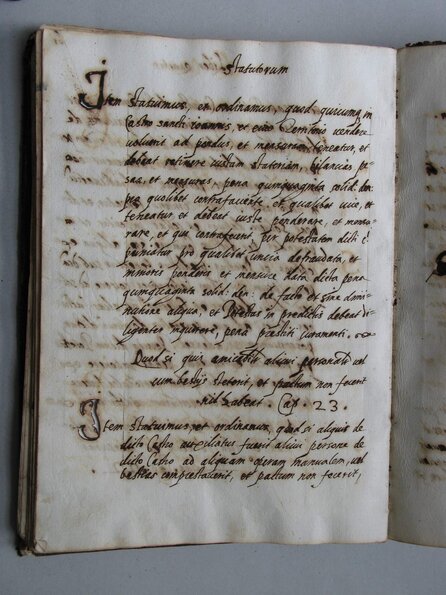 statutorum
Item statuimus, et ordinamus, quod quicumq in
Castro santi ioannis, et eius territorio vendere
voluerit ad pondus, et mensuram teneatur, et
debeat retinere iustam stateriam, bilancias pe-
sas, et mensuras, pena quinquaginta solid: den
pro quolibet contrafaciente et qualibet vice, et
teneatur, et debeat iuste ponderare, et mensu-
rare, et qui contrafecerit, per potestatem dicti C
puniatur pro qualibet uncia defraudata, et
minoris ponderis, et mensure data dicta pena
quinquaginta solid: den: de facto et sine dimi-
nutione aliqua, et Potestas in predictis debeat di-
ligenter inquirere, pena prestiti iuramenti.
Quod si quis amicabilr alicui personali vel
cum bestijs steterit, et pactum non fecerit
nil habeat. Cap. 23.
Item statuimus, et ordinamus, quod si aliquis de
dicto Castro auxiliatus fuerit alicui persone de
dicto Castro ad aliquam operam manualem, vel
bestias, et pactum non fecerit,